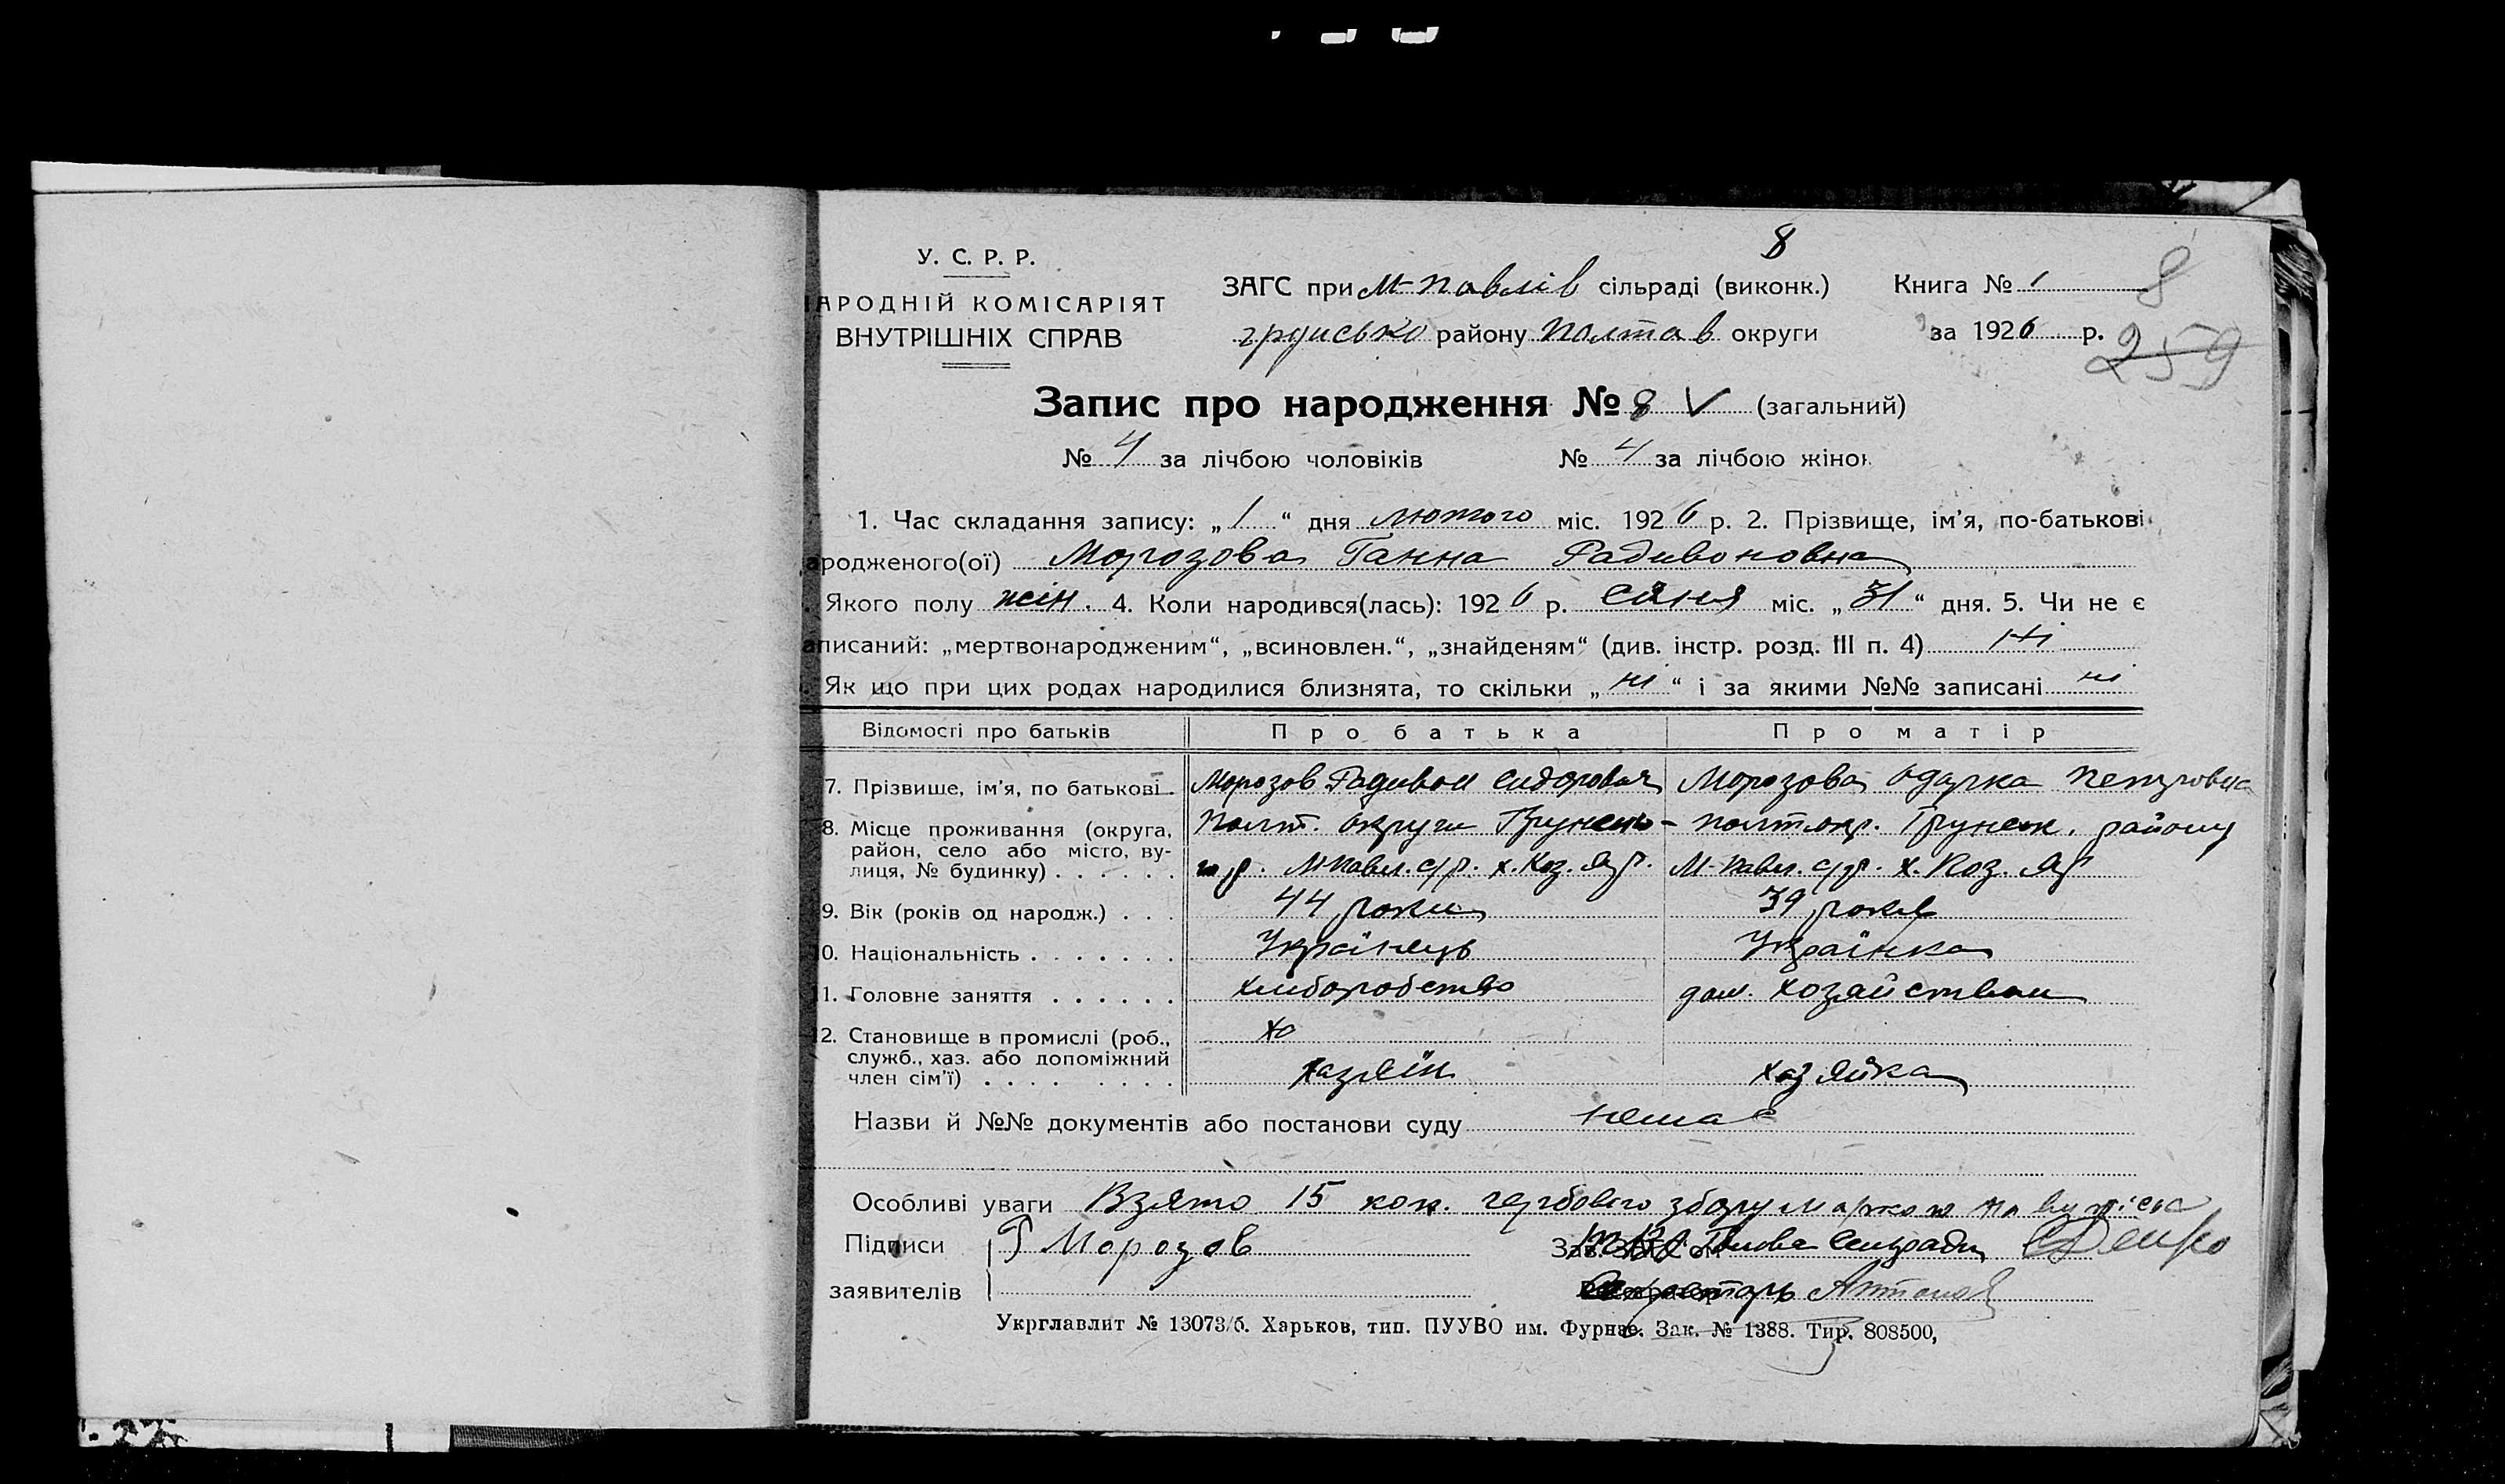 8
У. С. Р. Р.
АРОДНІЙ КОМІСАРІЯТ
ВНУТРІШНІХ СПРАВ
ЗАГС при М-Павлів сільраді (виконк.)
грунсько району Полтав округи
Книга № 1
8
за 1926 р.
259
Запис про народження № 8 V (загальний)
№ 4 за лічбою чоловіків № 4 за лічбою жінок
1. Час складання запису: „1“ дня лютого міс. 1926 р. 2. Прізвище, ім’я, по-батькові
ародженого(ої) Морозова Ганна Радивоновна
Якого полу жін. 4. Коли народився(лась): 1926 р. січня міс. „31“ дня. 5. Чи не є
аписаний: „мертвонародженим“, „всиновлен.“, „знайденям“ (див. інстр. розд. III п. 4) Ні
Як що при цих родах народилися близнята, то скільки „ні“ і за якими №№ записані ні
Відомості про батьків Про батька Про матір
7. Прізвище, ім’я, по батькові. Морозов Радивон Сидорович Морозова Одарка Петровна
8. Місце проживання (округа, район, село або місто, вулиця, № будинку) . . . . . .
Полт. округи Грунсько-
р. М-Павл. с/р. х. Коз. Яр.
Полт. окр. Грунськ. району
М-Павл. с/р. х. Коз. Яр
9. Вік (років од народж.) . . . 44 роки 39 років
10. Національність . . . . . . . Українець Українка
11. Головне заняття . . . . . . хліборобство дом. хозяйством
12. Становище в промислі (роб., хо
служб., хаз. або допоміжний
член сім’ї) . . . . . . . . хазяїн хазяйка
Назви й №№ документів або постанови суду немає
Особливі уваги Взято 15 коп. гербового збору маркою на випіск
Підписи Р Морозов Голова Сільради
заявителів Секретарь
Укрглавлит № 13073/б. Харьков, тип. ПУУВО им. Фурнзе. Зак. № 1388. Тир. 808500,